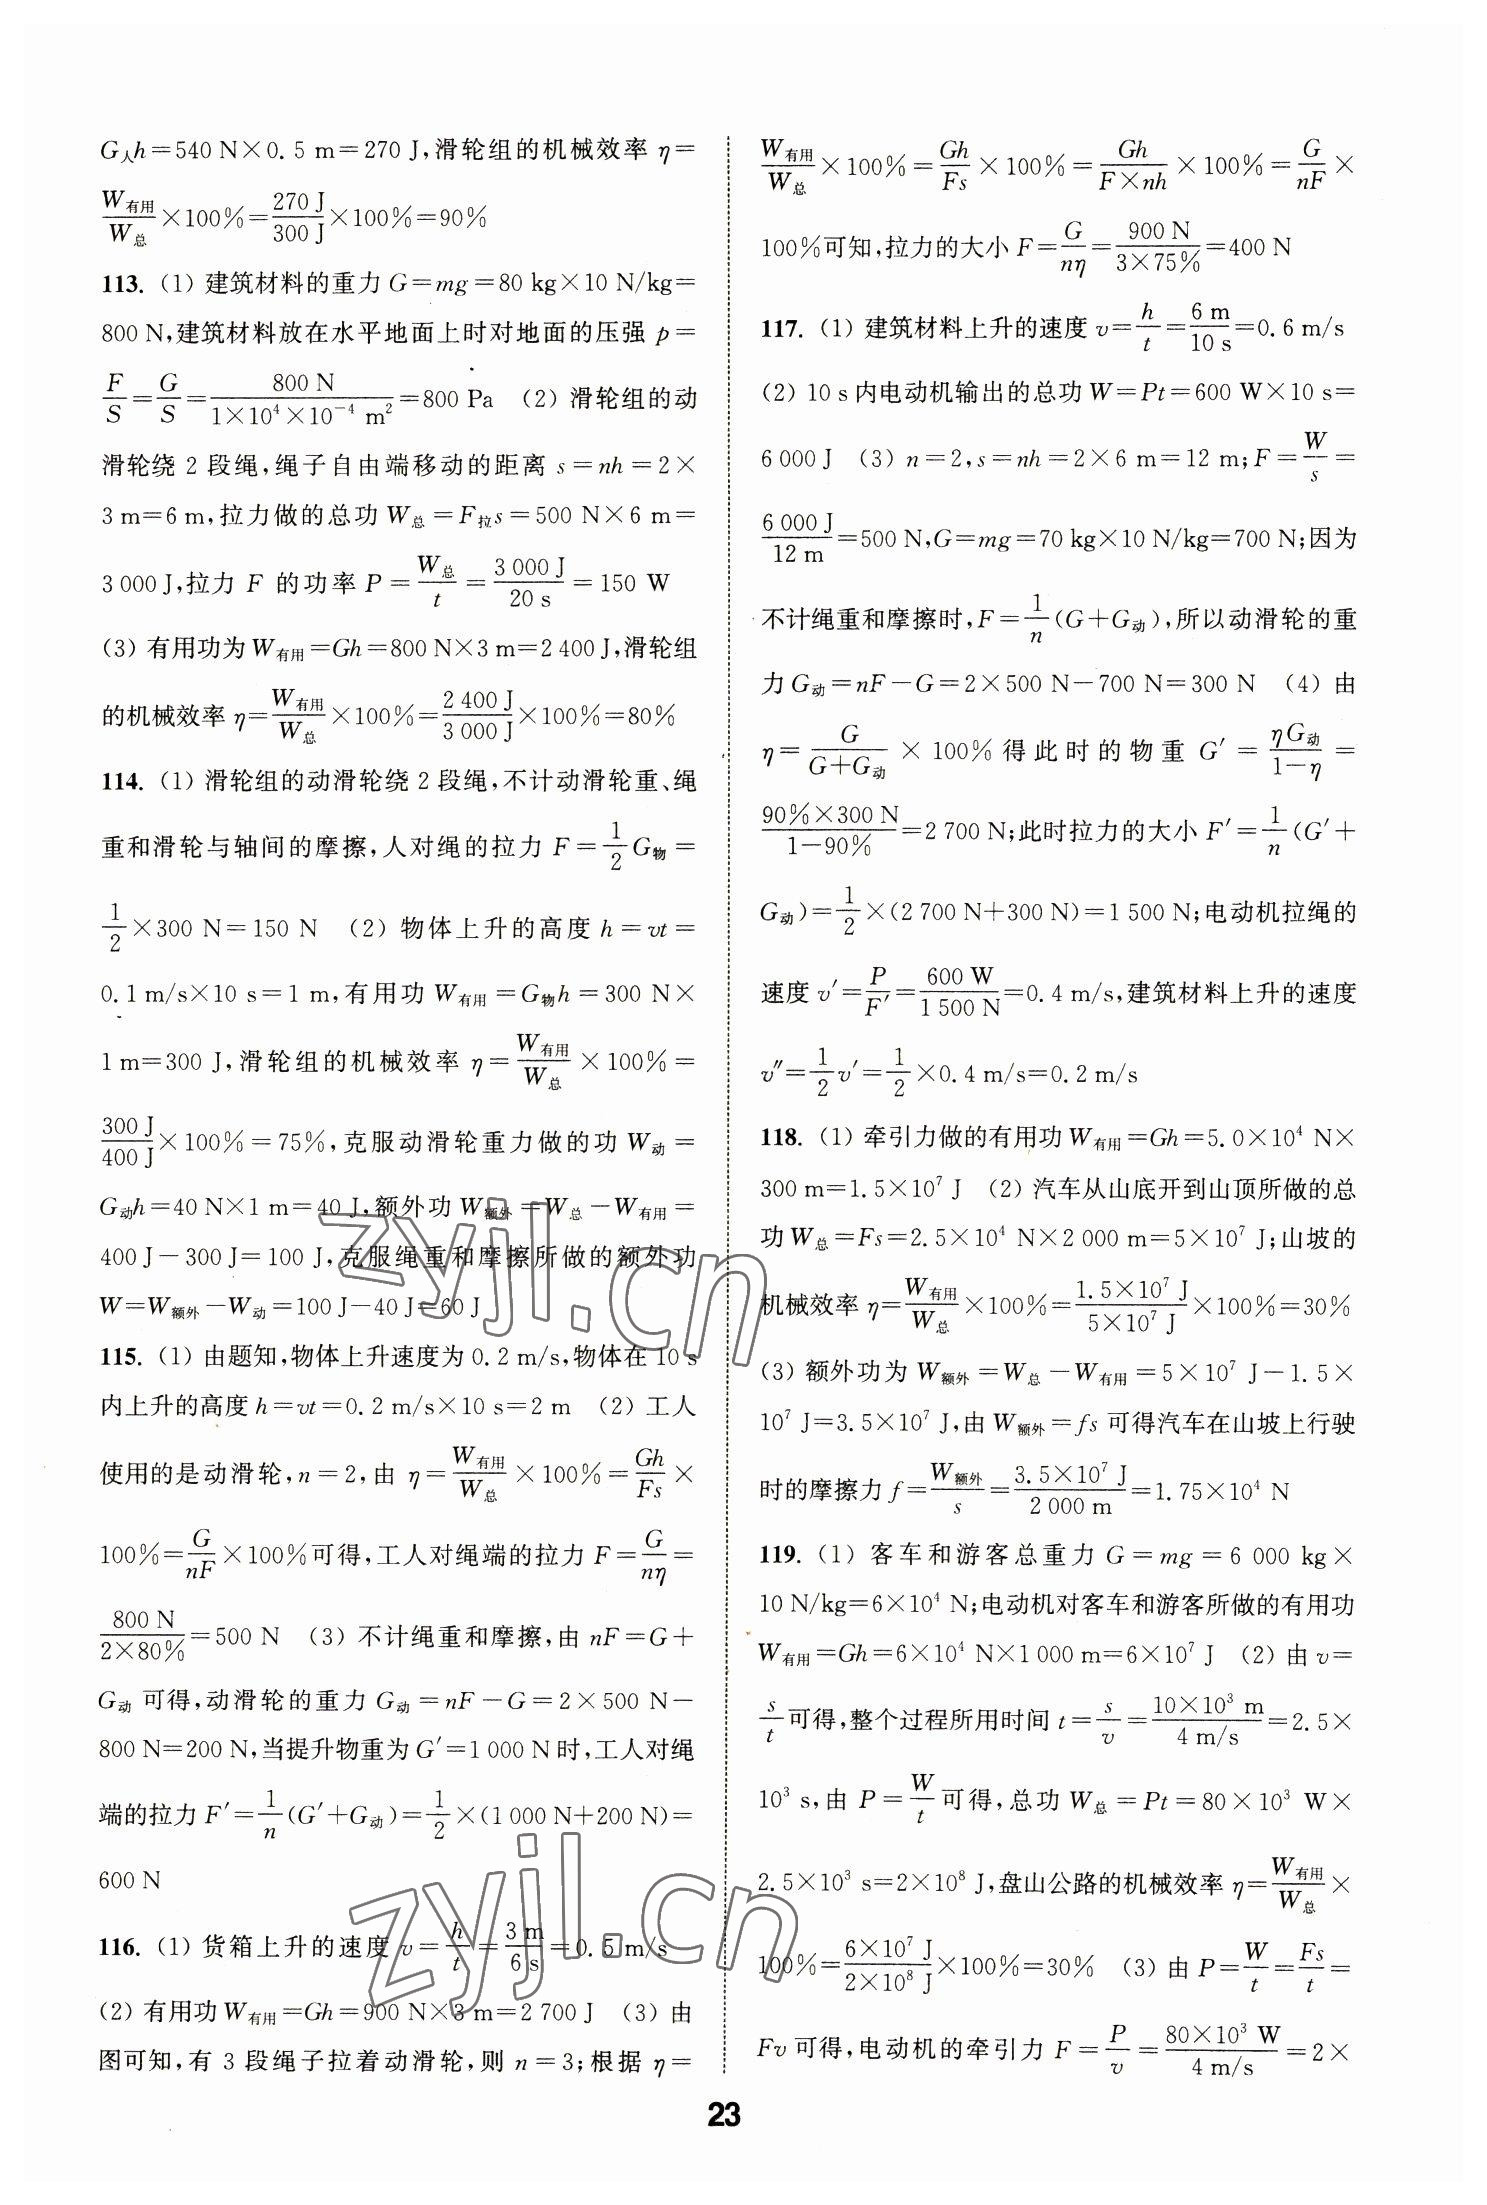 G人h=540 N×0.5 m=270 J,滑轮组的机械效率 η=
W有用/W总×100%=270 J/300 J×100%=90%
113. (1) 建筑材料的重力 G=mg=80 kg×10 N/kg=
800 N,建筑材料放在水平地面上时对地面的压强 p=
F/S=G/S=800 N/(1×10⁴×10⁻⁴ m²)=800 Pa (2) 滑轮组的动
滑轮绕 2 段绳,绳子自由端移动的距离 s=nh=2×
3 m=6 m,拉力做的总功 W总=F拉s=500 N×6 m=
3 000 J,拉力 F 的功率 P=W总/t=3 000 J/20 s=150 W
(3) 有用功为 W有用=Gh=800 N×3 m=2 400 J,滑轮组
的机械效率 η=W有用/W总×100%=2 400 J/3 000 J×100%=80%
114. (1) 滑轮组的动滑轮绕 2 段绳,不计动滑轮重、绳
重和滑轮与轴间的摩擦,人对绳的拉力 F=1/2 G物=
1/2×300 N=150 N (2) 物体上升的高度 h=vt=
0.1 m/s×10 s=1 m,有用功 W有用=G物h=300 N×
1 m=300 J,滑轮组的机械效率 η=W有用/W总×100%=
300 J/400 J×100%=75%,克服动滑轮重力做的功 W动=
G动h=40 N×1 m=40 J,额外功 W额外=W总-W有用=
400 J-300 J=100 J,克服绳重和摩擦所做的额外功
W=W额外-W动=100 J-40 J=60 J
115. (1) 由题知,物体上升速度为 0.2 m/s,物体在 10 s
内上升的高度 h=vt=0.2 m/s×10 s=2 m (2) 工人
使用的是动滑轮,n=2,由 η=W有用/W总×100%=Gh/Fs×
100%=G/nF×100%可得,工人对绳端的拉力 F=G/nη=
800 N/(2×80%)=500 N (3) 不计绳重和摩擦,由 nF=G+
G动 可得,动滑轮的重力 G动=nF-G=2×500 N-
800 N=200 N,当提升物重为 G′=1 000 N时,工人对绳
端的拉力 F′=1/n(G′+G动)=1/2×(1 000 N+200 N)=
600 N
116. (1) 货箱上升的速度 v=h/t=3 m/6 s=0.5 m/s
(2) 有用功 W有用=Gh=900 N×3 m=2 700 J (3) 由
图可知,有 3 段绳子拉着动滑轮,则 n=3;根据 η=
W有用/W总×100%=Gh/Fs×100%=Gh/(F×nh)×100%=G/nF×
100%可知,拉力的大小 F=G/nη=900 N/(3×75%)=400 N
117. (1) 建筑材料上升的速度 v=h/t=6 m/10 s=0.6 m/s
(2) 10 s内电动机输出的总功 W=Pt=600 W×10 s=
6 000 J (3) n=2,s=nh=2×6 m=12 m;F=W/s=
6 000 J/12 m=500 N,G=mg=70 kg×10 N/kg=700 N;因为
不计绳重和摩擦时,F=1/n(G+G动),所以动滑轮的重
力 G动=nF-G=2×500 N-700 N=300 N (4) 由
η=G/(G+G动)×100%得此时的物重 G′=ηG动/(1-η)=
90%×300 N/(1-90%)=2 700 N;此时拉力的大小 F′=1/n(G′+
G动)=1/2×(2 700 N+300 N)=1 500 N;电动机拉绳的
速度 v′=P/F′=600 W/1 500 N=0.4 m/s,建筑材料上升的速度
v″=1/2 v′=1/2×0.4 m/s=0.2 m/s
118. (1) 牵引力做的有用功 W有用=Gh=5.0×10⁴ N×
300 m=1.5×10⁷ J (2) 汽车从山底开到山顶所做的总
功 W总=Fs=2.5×10⁴ N×2 000 m=5×10⁷ J;山坡的
机械效率 η=W有用/W总×100%=1.5×10⁷ J/5×10⁷ J×100%=30%
(3) 额外功为 W额外=W总-W有用=5×10⁷ J-1.5×
10⁷ J=3.5×10⁷ J,由 W额外=fs 可得汽车在山坡上行驶
时的摩擦力 f=W额外/s=3.5×10⁷ J/2 000 m=1.75×10⁴ N
119. (1) 客车和游客总重力 G=mg=6 000 kg×
10 N/kg=6×10⁴ N;电动机对客车和游客所做的有用功
W有用=Gh=6×10⁴ N×1 000 m=6×10⁷ J (2) 由 v=
s/t可得,整个过程所用时间 t=s/v=10×10³ m/4 m/s=2.5×
10³ s,由 P=W/t可得,总功 W总=Pt=80×10³ W×
2.5×10³ s=2×10⁸ J,盘山公路的机械效率 η=W有用/W总×
100%=6×10⁷ J/2×10⁸ J×100%=30% (3) 由 P=W/t=Fs/t=
Fv 可得,电动机的牵引力 F=P/v=80×10³ W/4 m/s=2×
23
zyjl.cn
zyjl.cn